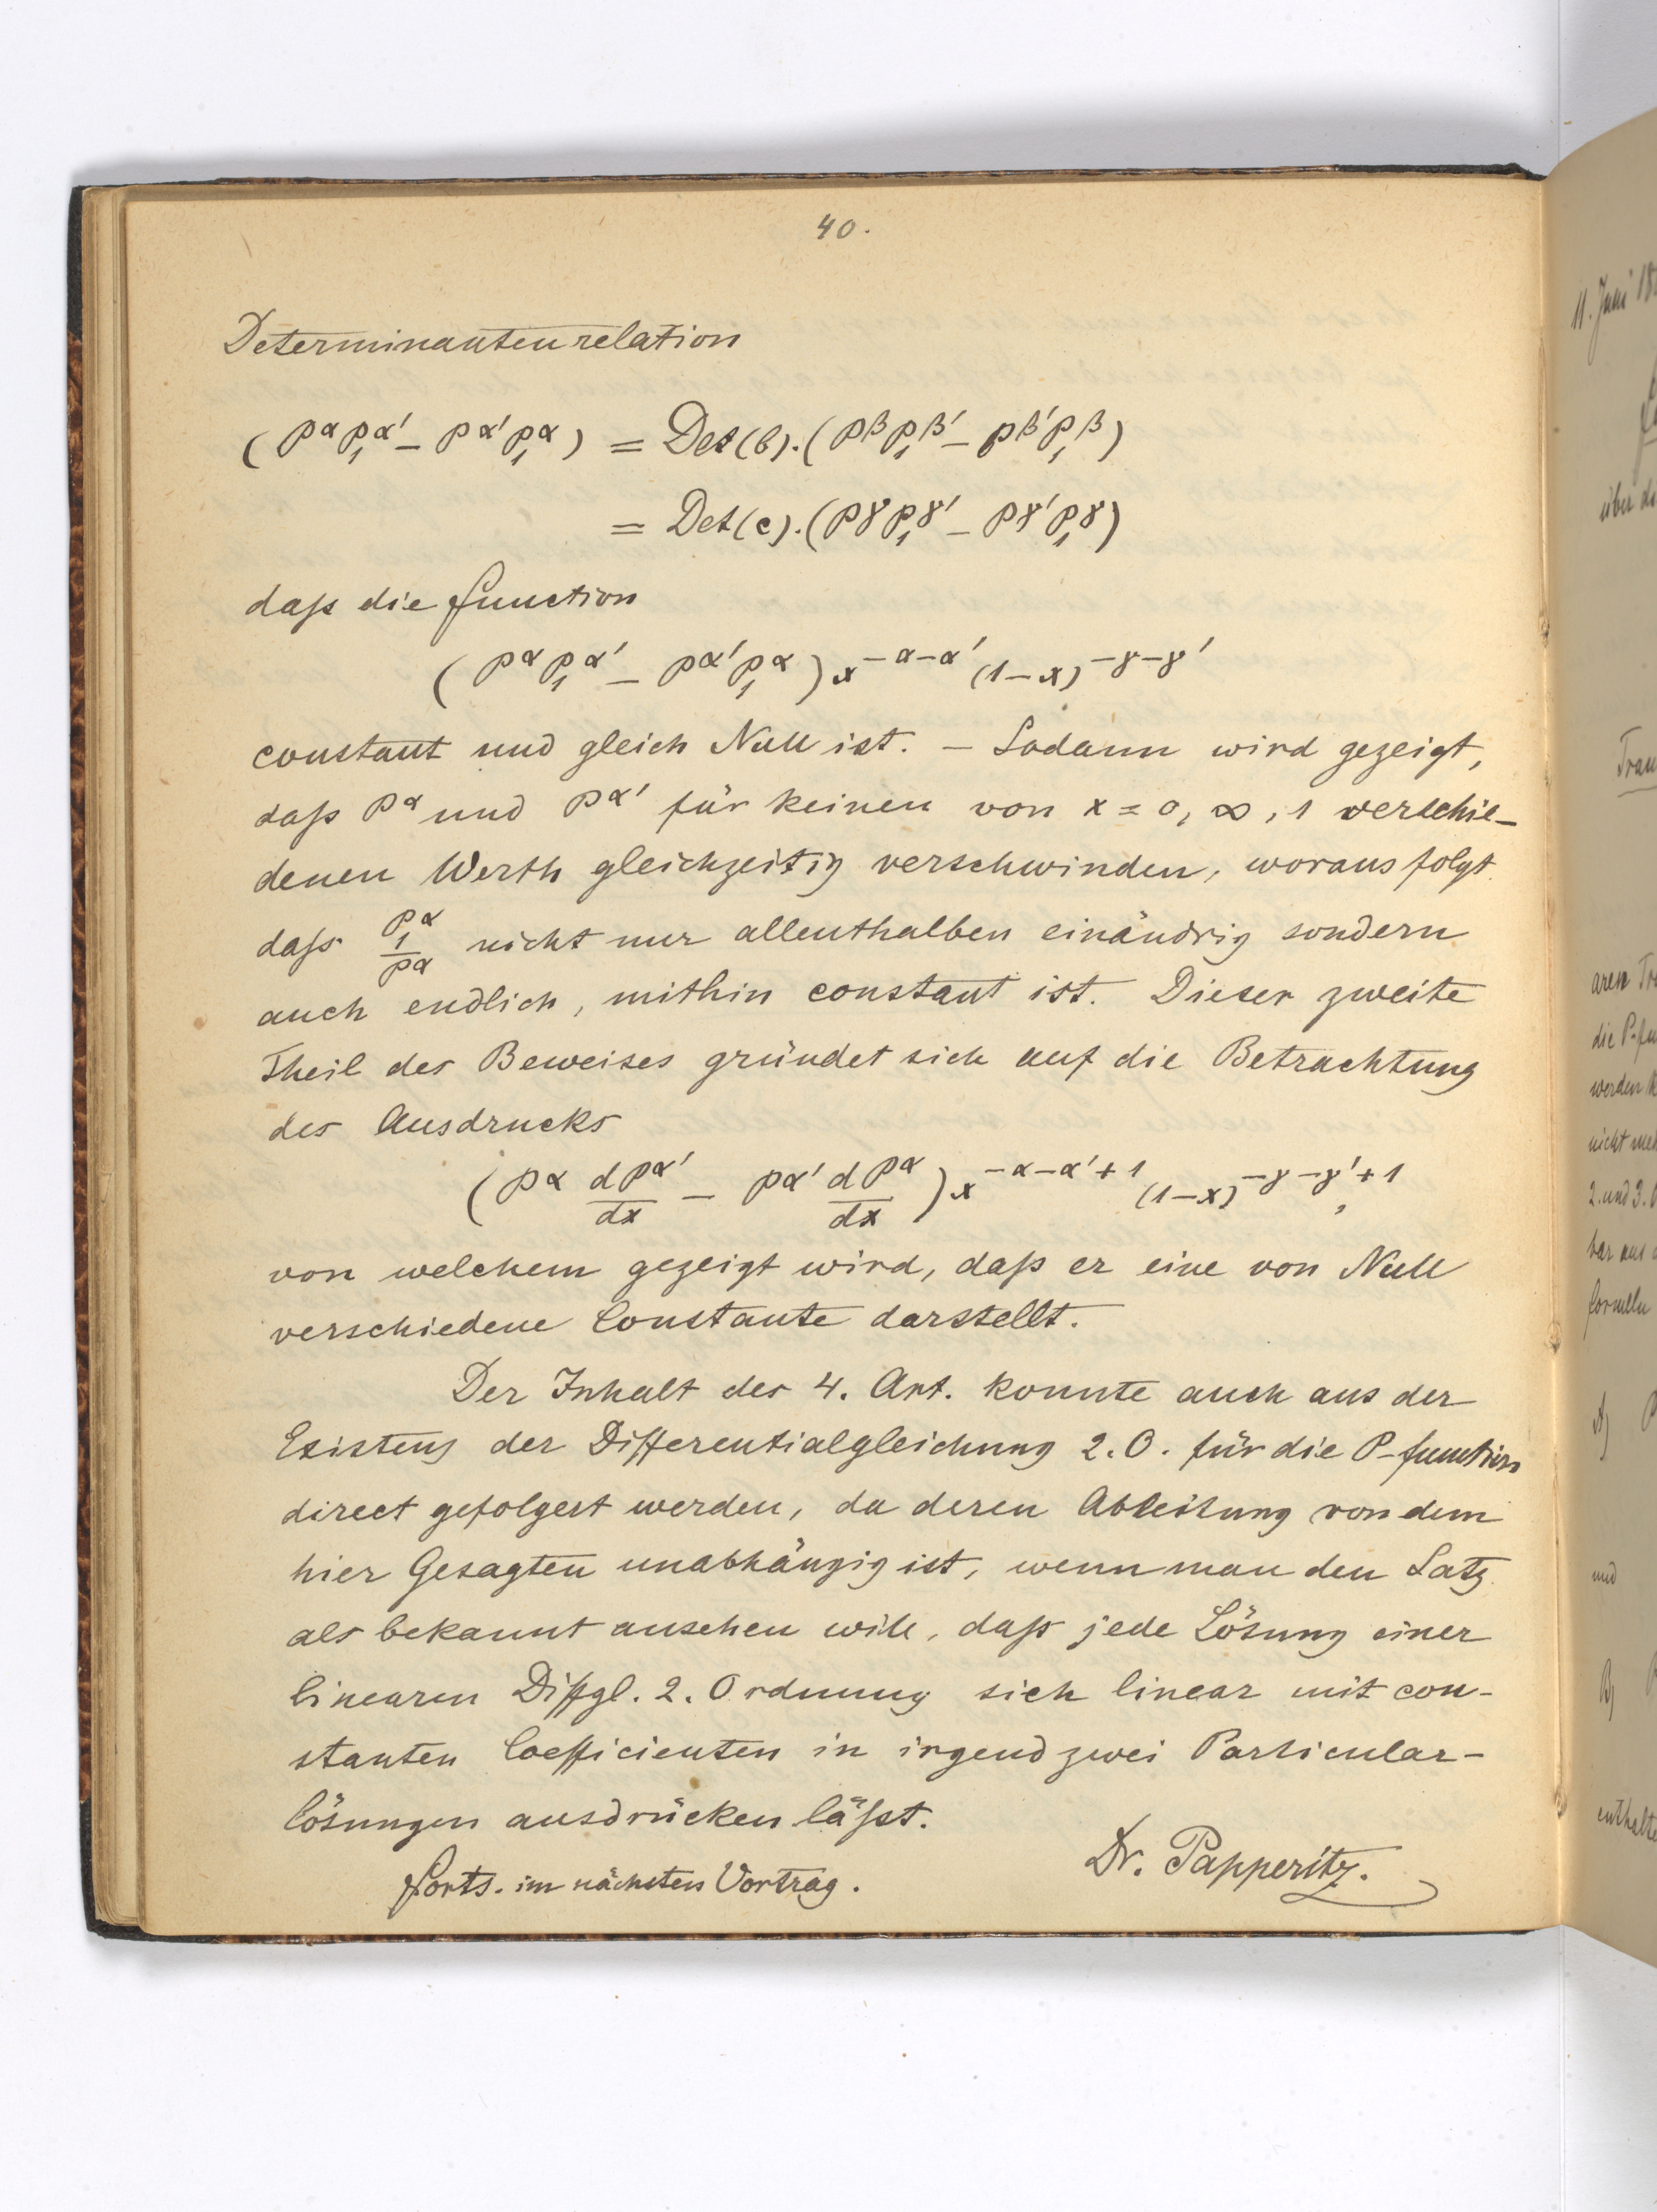 40.
Determinantenrelation
(P^α P₁^α' − P^α' P₁^α) = Det(b).(P^β P₁^β' − P^β' P₁^β)
= Det(c).(P^γ P₁^γ' − P^γ' P₁^γ)
daß die Function
(P^α P₁^α' − P^α' P₁^α) x^−α−α' (1−x)^−γ−γ'
constant und gleich Null ist. – Sodann wird gezeigt,
daß P^α und P^α' für keinen von x = 0, ∞, 1 verschie-
denen Werth gleichzeitig verschwinden, woraus folgt
daß P₁^α/P^α nicht nur allenthalben einändrig sondern
auch endlich, mithin constant ist. Dieser zweite
Theil des Beweises gründet sich auf die Betrachtung
des Ausdrucks
(P^α dP^α'/dx − P^α' dP^α/dx) x^−α−α'+1 (1−x)^−γ−γ'+1,
von welchem gezeigt wird, daß er eine von Null
verschiedene Constante darstellt.
Der Inhalt des 4. Art. konnte auch aus der
Existenz der Differentialgleichung 2.O. für die P-function
direct gefolgert werden, da deren Ableitung von dem
hier Gesagten unabhängig ist, wenn man den Satz
als bekannt ansehen will, daß jede Lösung einer
linearen Diffgl. 2. Ordnung sich linear mit con-
stanten Coefficienten in irgend zwei Particular-
lösungen ausdrücken läßt.
Dr. Papperitz.
Forts. im nächsten Vortrag.
11. Juni 18
über di
Tran
aren Tr
die P-fu
werden
nicht meh
2. und 3.
bar aus
formeln
A)
und
B)
enthalte